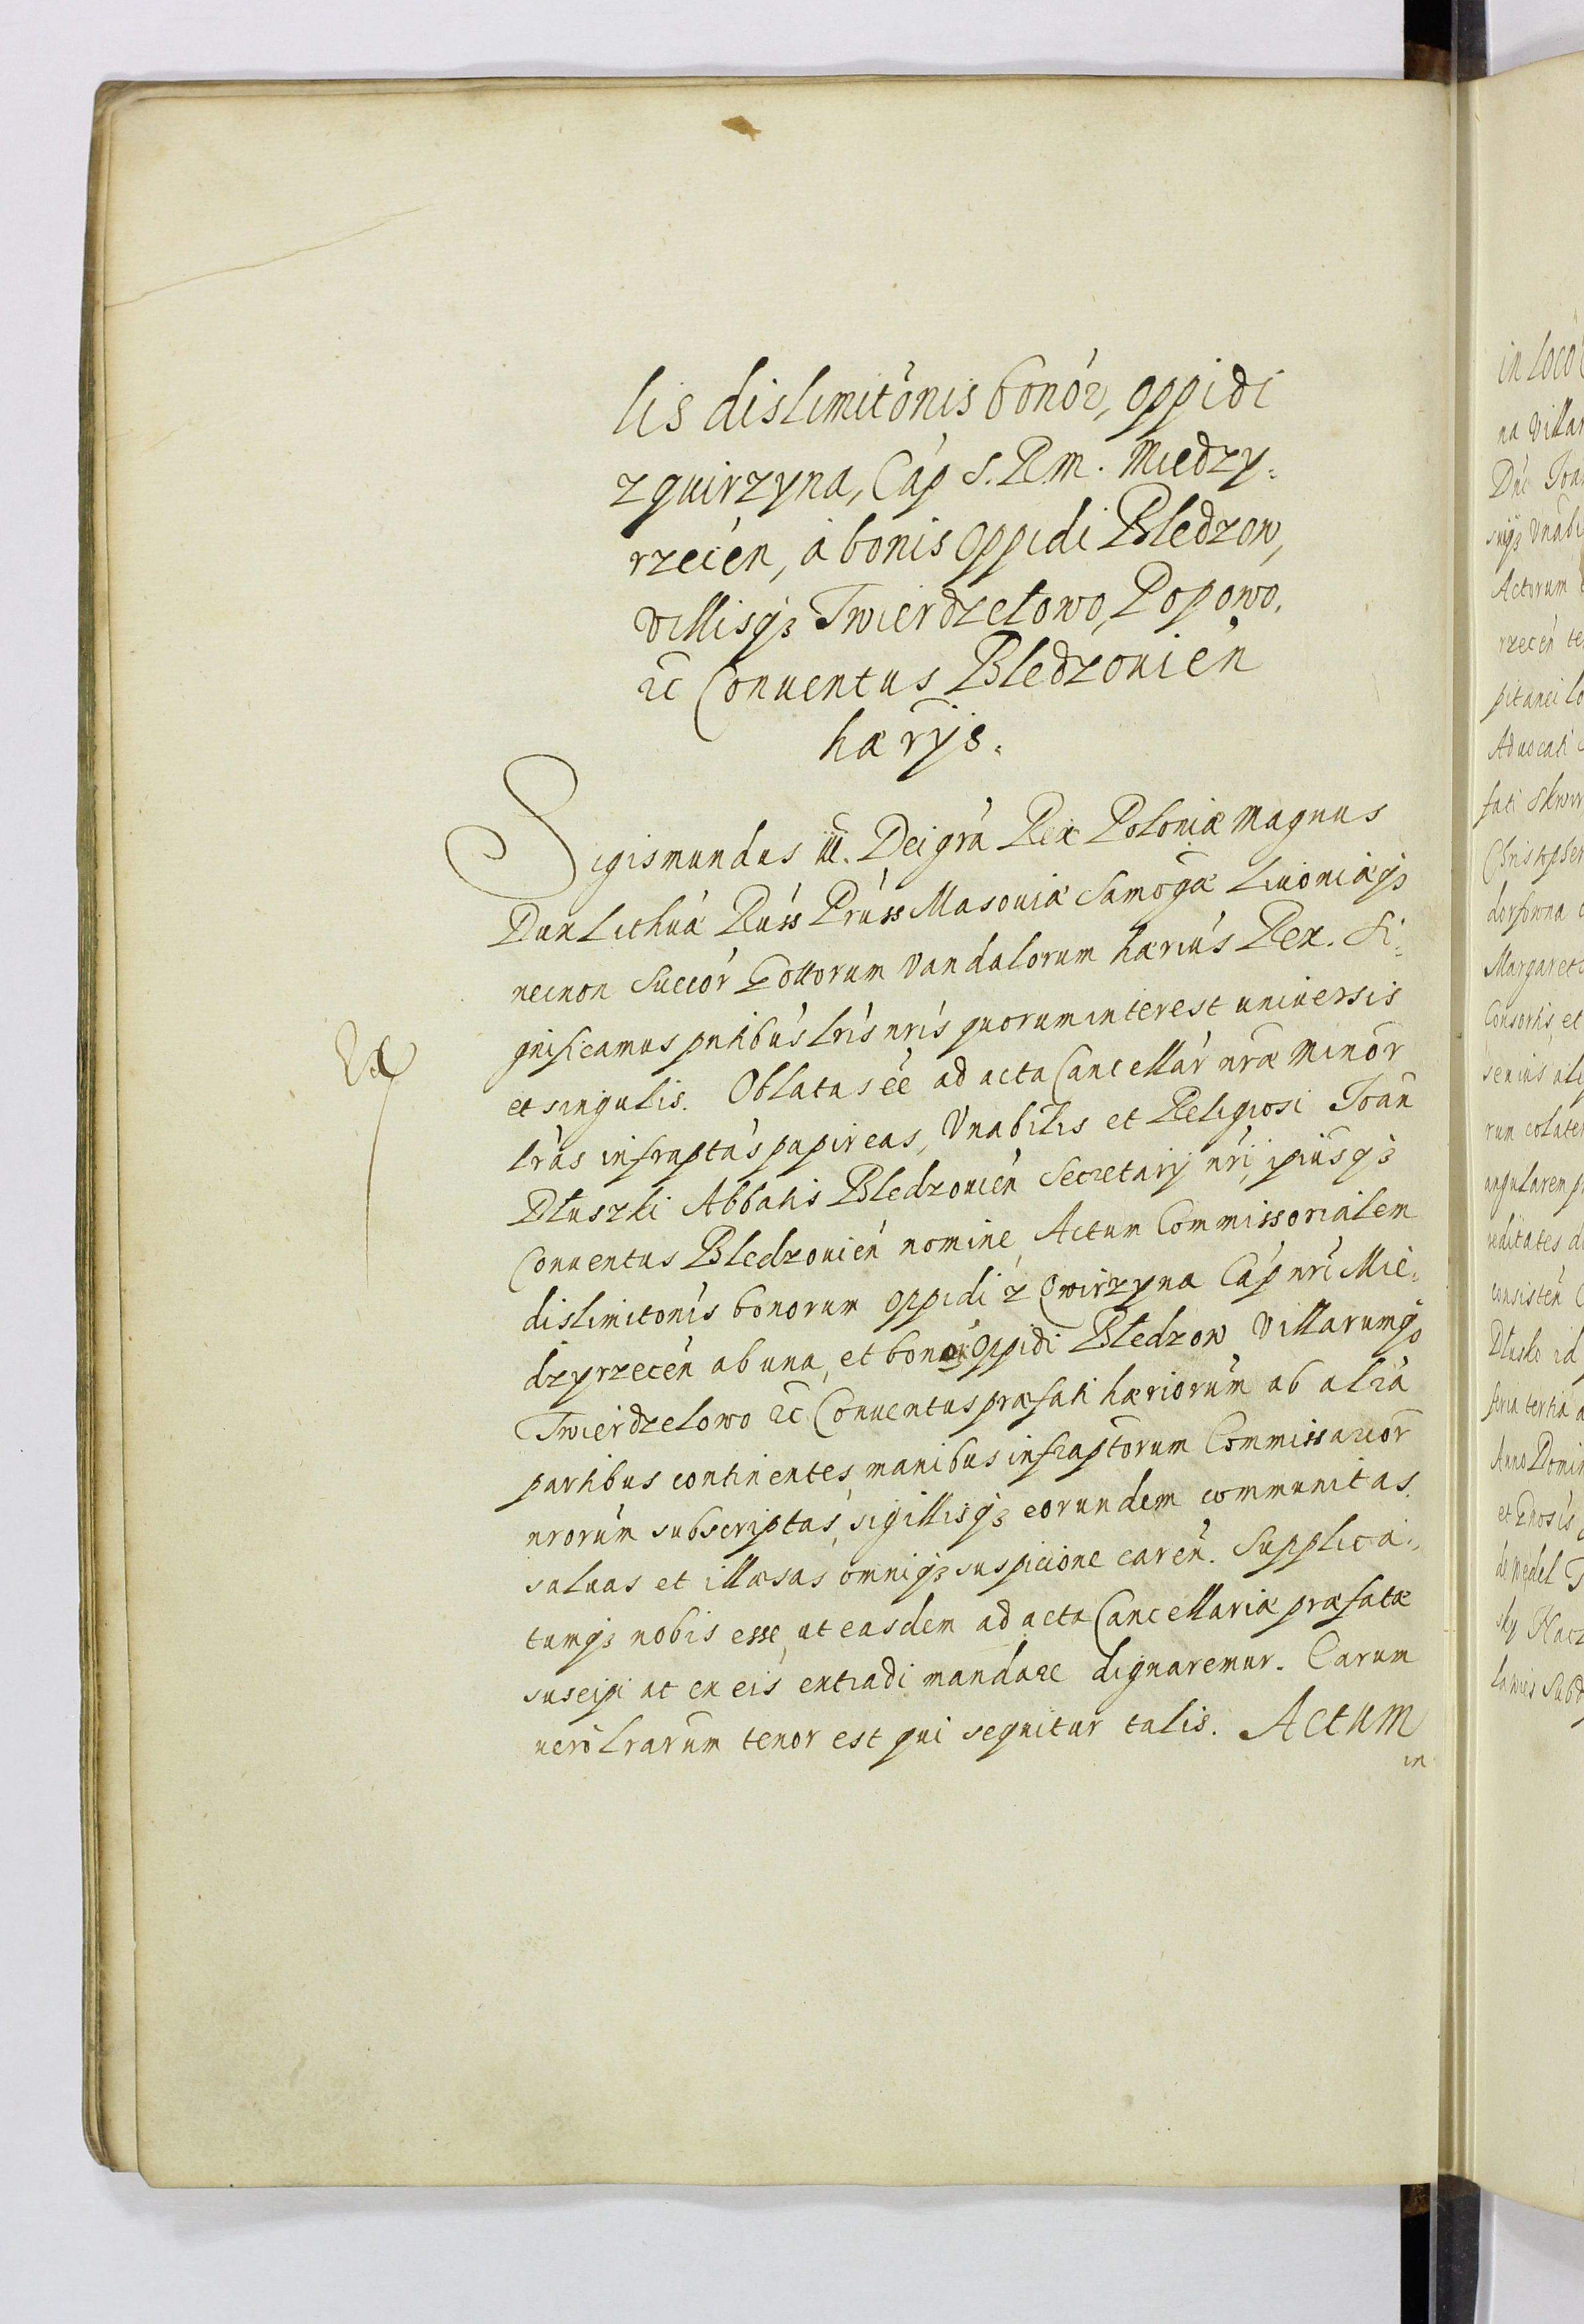 lis dislimitõnis bonor, oppidi
Zquirzyna, Cap S. R. M. Miedzy-
rzecen, à bonis Oppidi Bledzow,
villisqȝ Twierdzelowo, Popowo,
ac Conuentus Bledzouien
hærijs.
Sigismundus III. Dei gra Rex Poloniæ Magnus
Dux Lithuæ Russ Pruss Masouiæ Samogæ Liuoniæqȝ
necnon Succor Gottorum Vandalorum hærius Rex. Si-
gnificamus pntibus lris nris quorum interest uniuersis
et singulis. Oblatas ee ad acta Cancellar nræ Minor
lras infraptas papireas, Vnabilis et Religiosi Joan
Dłuszki Abbatis Bledzouien Secretarij nri, ipiusqȝ
Conuentus Bledzouien nomine, Actum Commissorialem
dislimitonis bonorum oppidi z Qwirzyna Cap nri Mie-
dzyrzecen ab una, et bonor Oppidi Bledzow Villarumqȝ
Twierdzelowo ac Conuentus præfati hæriorum ab alia
partibus continentes, manibus infraptorum Commissarior
nrorum subscriptas, sigillisqȝ eorundem communitas.
saluas et illæsas omniqȝ suspicione caren. Supplica-
tumqȝ nobis esse, ut easdem ad acta Cancellariæ præfatæ
suscipi at ex eis extradi mandare dignaremur. Earum
uero lrarum tenor est qui sequitur talis. Actum
in
in loco
na Villar
Actorum
rzecen te
pitanei lo
Aduocati
fati Skwir
Christopher
Margaret
Consortis, et
rum colater
angularem
consisten
Dlusko id
feria tertia a
Anno Domin
de Wedel